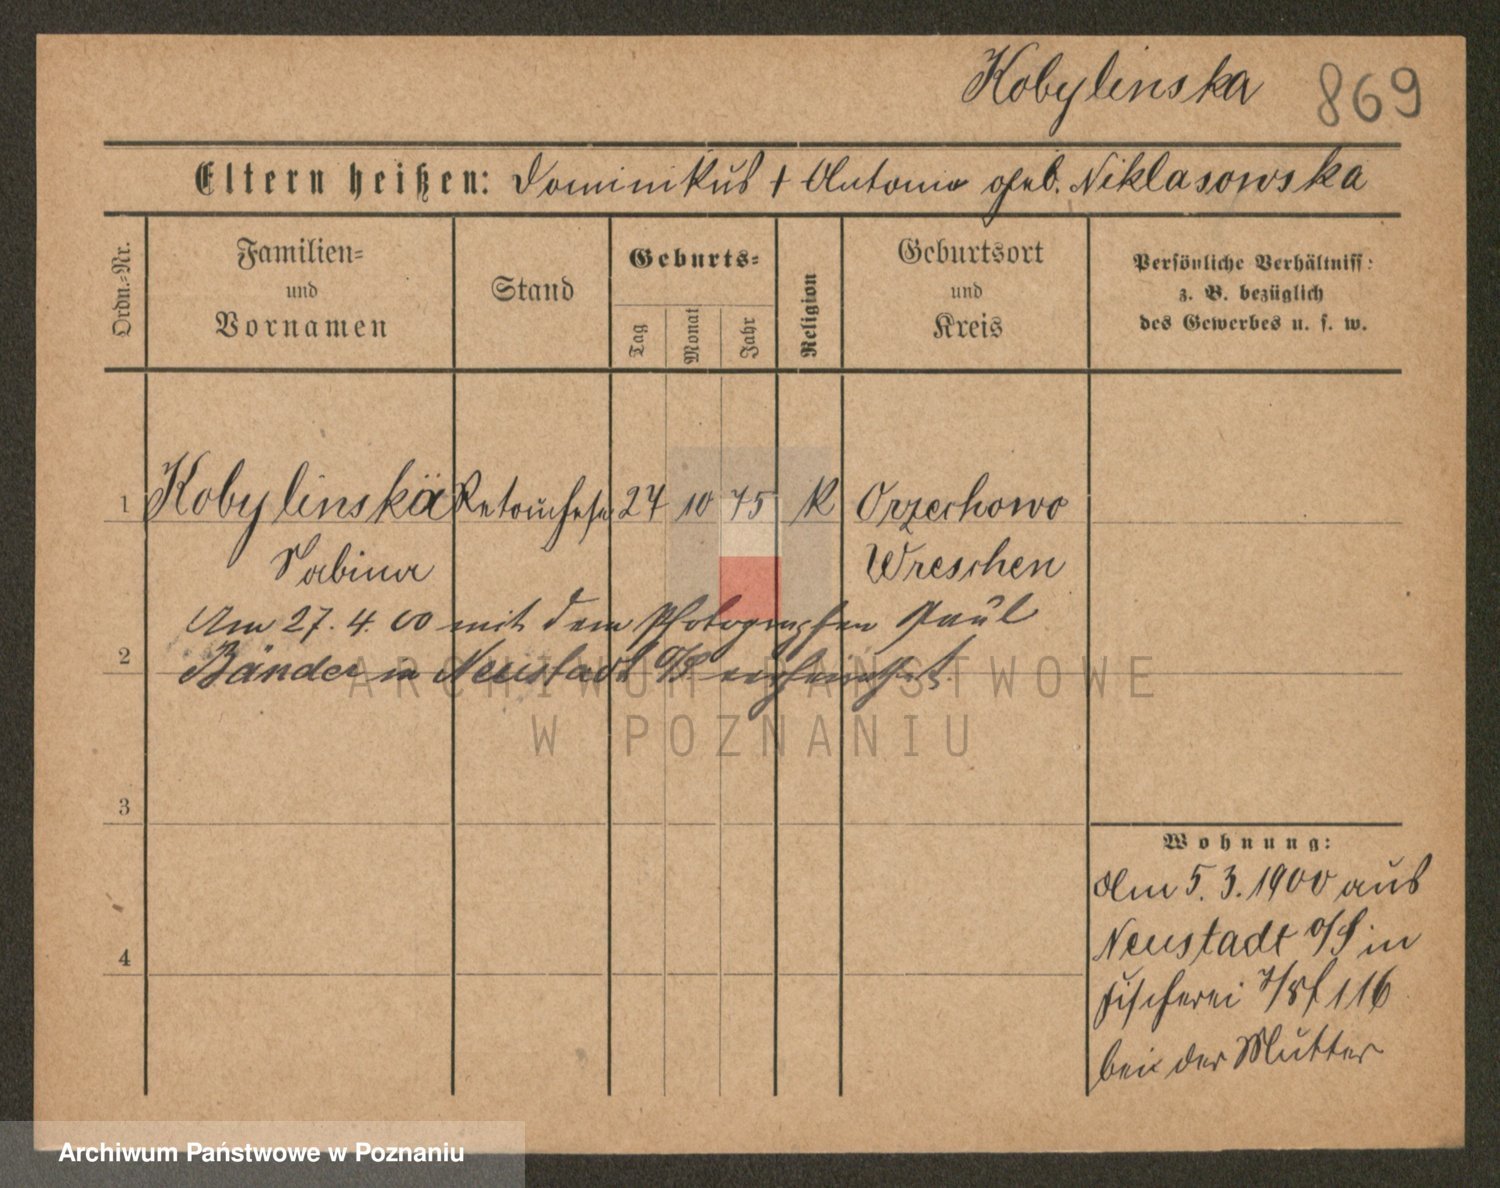 Kobylinska 869
Eltern heißen: Dominikus + Antonie geb. Niklasowska
Ordn.-Nr.
Familien-
und
Vornamen
Stand
Geburts-
Tag
Monat
Jahr
Religion
Geburtsort
und
Kreis
Persönliche Verhältniss:
z. B. bezüglich
des Gewerbes u. s. w.
1 Kobylinska 24 10 75 K Orzechowo
Sabina Wreschen
Am 27. 4. 00 mit dem Photographen Paul
2 Bänder in Neustadt O/S verheirathet.
ARCHIWUM PAŃSTWOWE
W POZNANIU
3
Wohnung:
Am 5. 3. 1900 aus
Neustadt O/S in
4
Fischerei 7/8 116
bei der Mutter
Archiwum Państwowe w Poznaniu